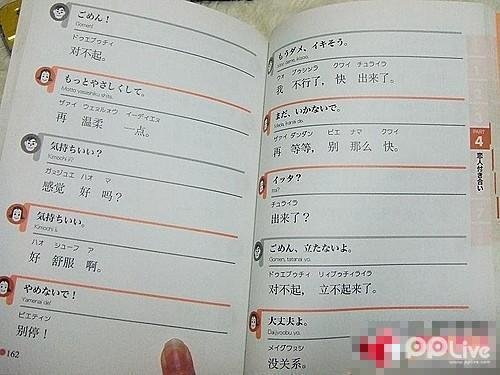 ごめん！
Gomen!
ドゥエブゥチィ
对不起。
もっとやさしくして。
Motto yasashiku shite.
ザァイ ウェンルォウ イーディエン
再 温柔 一点。
気持ちいい？
Kimochi ii?
ガンジュエ ハオ マ
感觉 好 吗？
気持ちいい。
Kimochi ii.
ハオ シューフ ア
好 舒服 啊。
やめないで！
Yamenai de!
ビエティン
别停！
162
もうダメ、イキそう。
ウオ ブゥシンラ クワイ チュライラ
我 不行了， 快 出来了。
まだ、いかないで。
ザァイ ダンダン ビエ ナマ クワイ
再 等等， 别 那么 快。
イッタ？
Itta?
チュライラ
出来了？
ごめん、立たないよ。
Gomen, tatanai yo.
ドゥエブゥチィ リィブゥチィライラ
对不起， 立不起来了。
大丈夫よ。
Daijyoobu yo.
メイグワンシ
没关系。
PART
4
恋人付き合い
PPLive
www.pplive.com